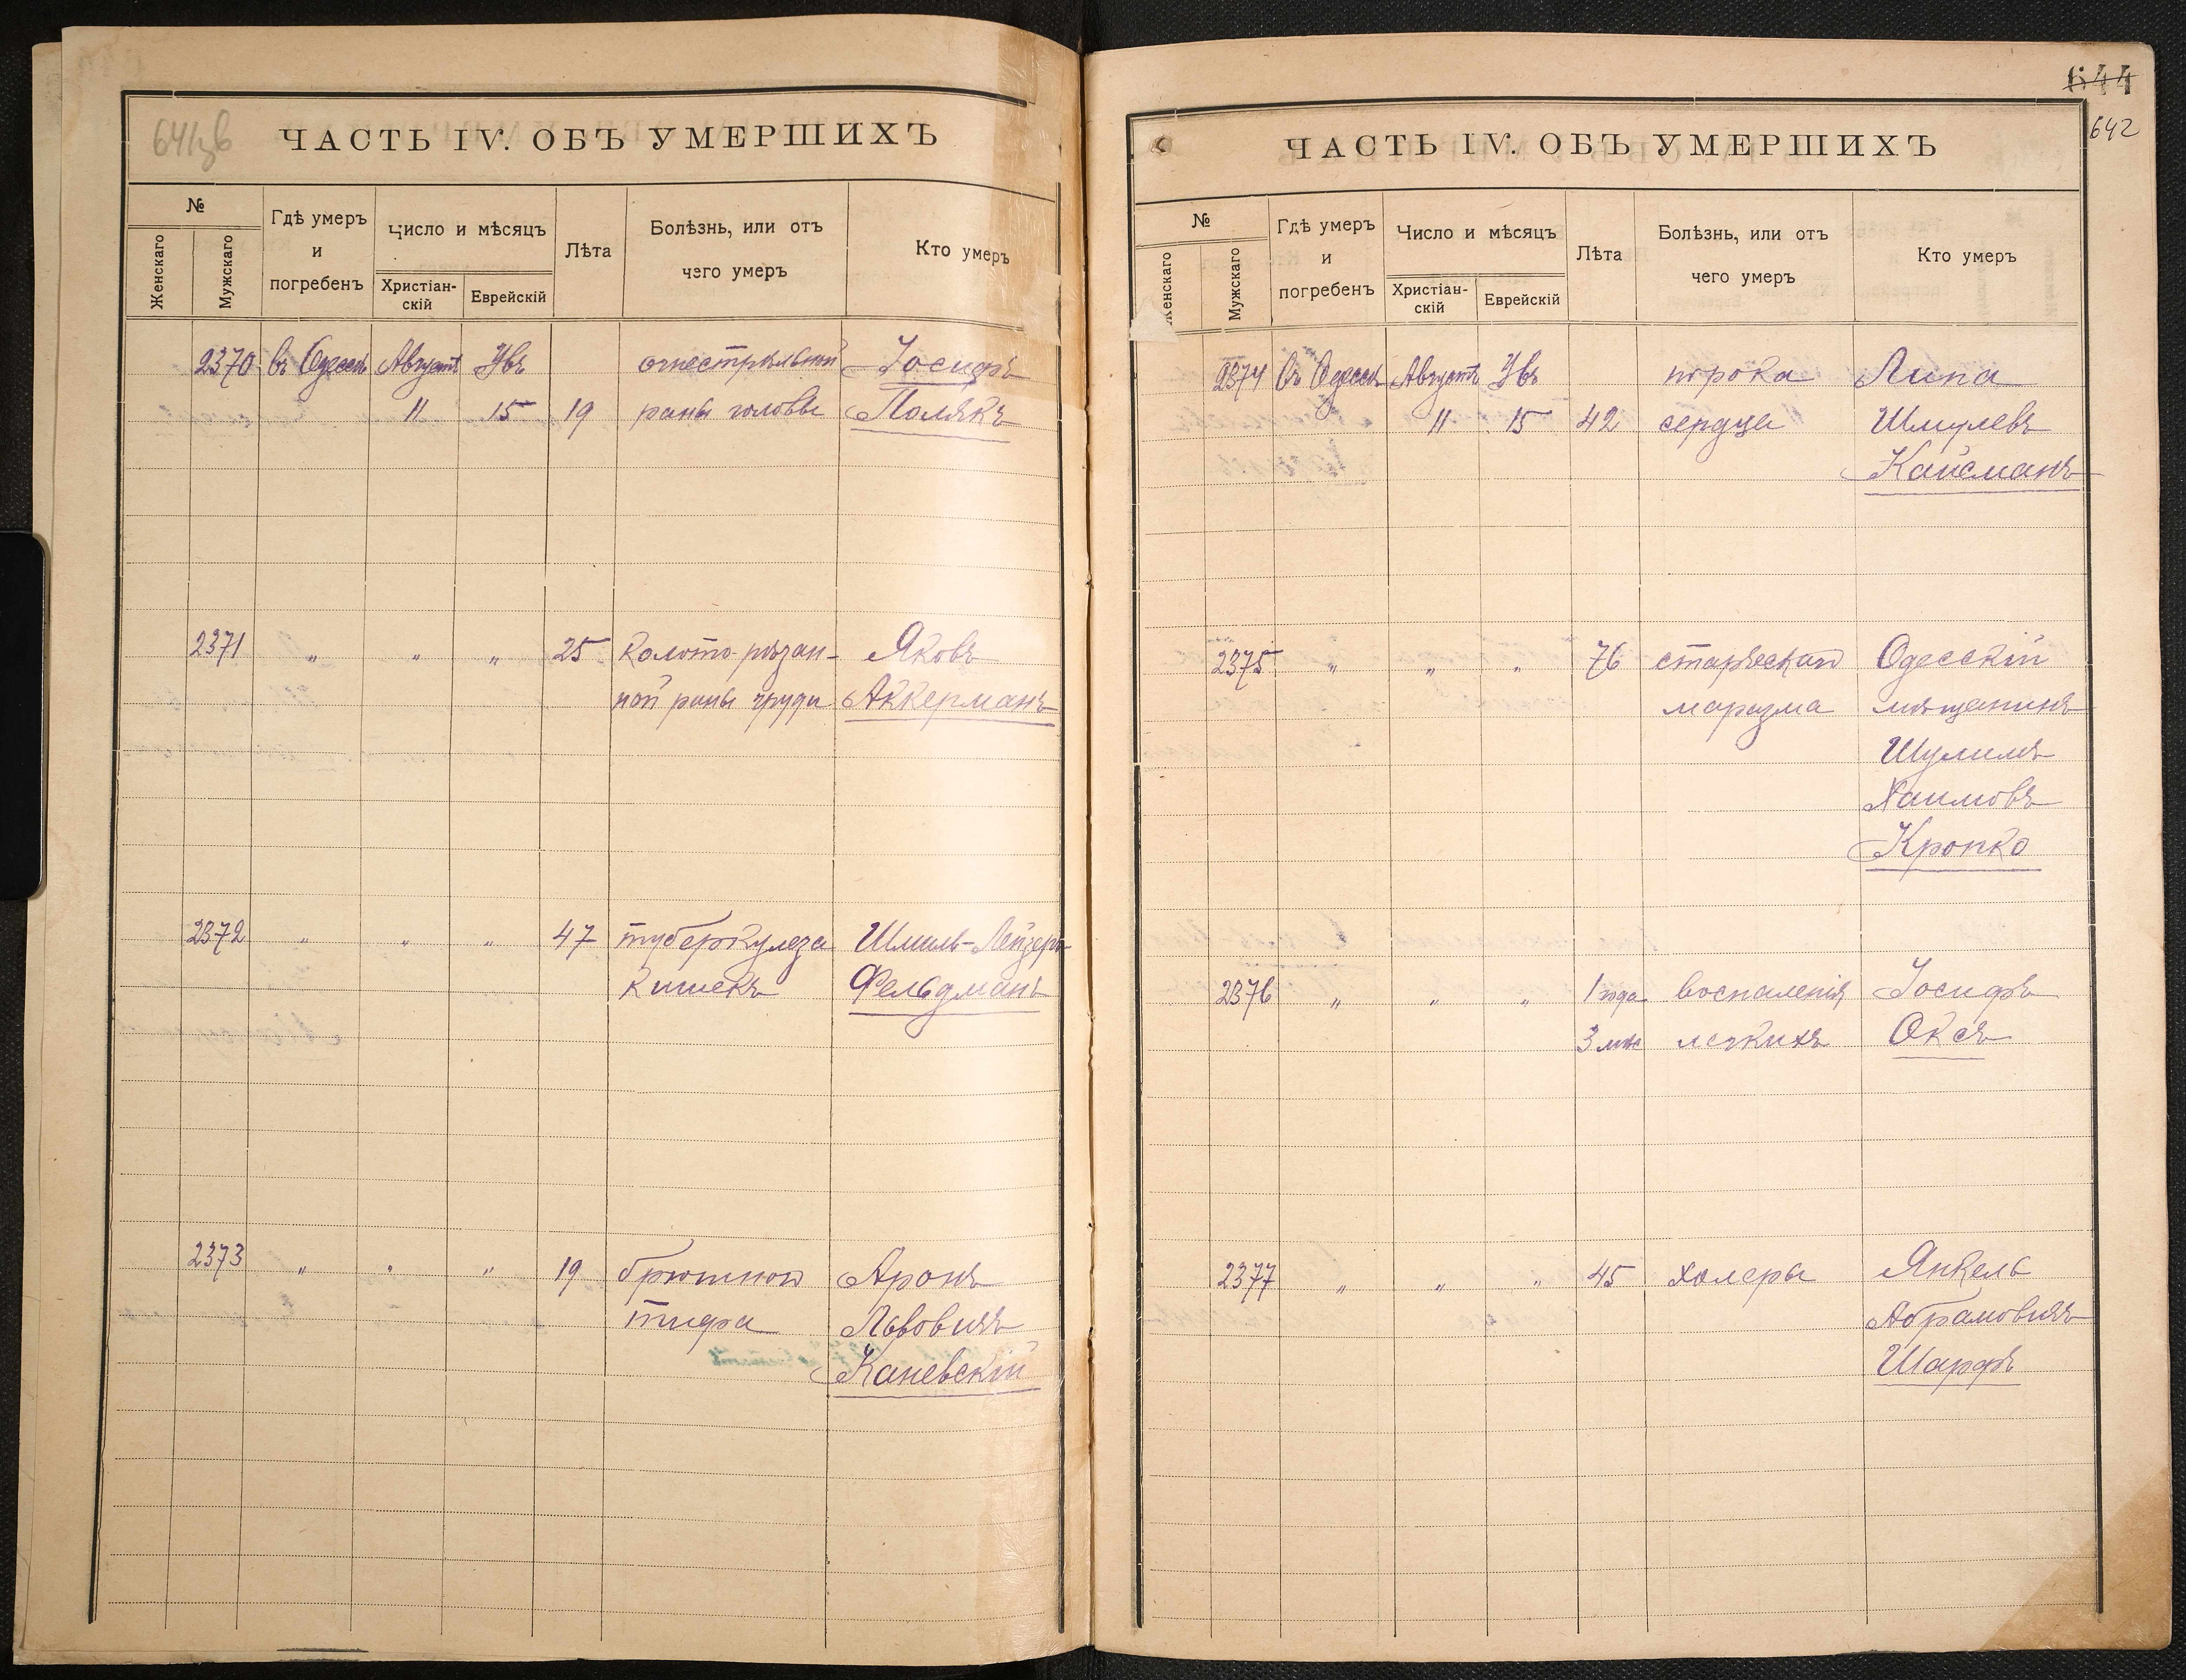 641 зв
ЧАСТЬ IV. ОБЪ УМЕРШИХЪ
№
Женскаго
Мужскаго
Гдѣ умеръ
и
погребенъ
Число и мѣсяцъ
Христіан-
скій
Еврейскій
Лѣта
Болѣзнь, или отъ
чего умеръ
Кто умеръ
2370 въ Одессѣ Августъ Увъ огнестрѣльной Іосифъ
11 15 19 раны головы Полякъ
2371 " " " 25 колото-рѣзан- Яковъ
ной раны груди Аккерманъ
2372 " " " 47 туберкулеза Шмиль-Лейзеръ
кишекъ Фельдманъ
2373 " " " 19 брюшного Аронъ
тифа Львовичъ
Каневскій
644
642
ЧАСТЬ IV. ОБЪ УМЕРШИХЪ
№
Женскаго
Мужскаго
Гдѣ умеръ
и
погребенъ
Число и мѣсяцъ
Христіан-
скій
Еврейскій
Лѣта
Болѣзнь, или отъ
чего умеръ
Кто умеръ
2374 Въ Одессѣ Августъ Увъ порока Липа
11 15 42 сердца Шмулевъ
Кайсманъ
2375 " " " 76 старческаго Одесскій
маразма мѣщанинъ
Шулимъ
Хаимовъ
Кропко
2376 " " " 1 года воспаленія Іосифъ
3 мѣс легкихъ Оксъ
2377 " " " 45 холеры Янкель
Абрамовичъ
Шарфъ